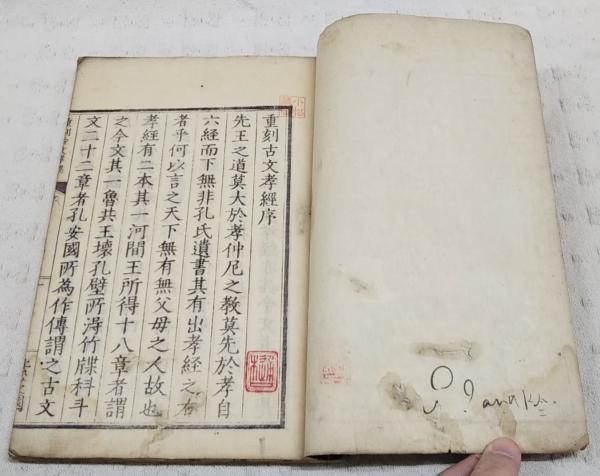 重刻古文孝經序
先王之道莫大於孝仲尼之教莫先於孝自
六經而下無非孔氏遺書其有出孝經之右
者乎何以言之天下無有無父母之人故也
孝經有二本其一河間王所得十八章者謂
之今文其一魯共王壞孔壁所得竹牒科斗
文二十二章者孔安國所為作傳謂之古文